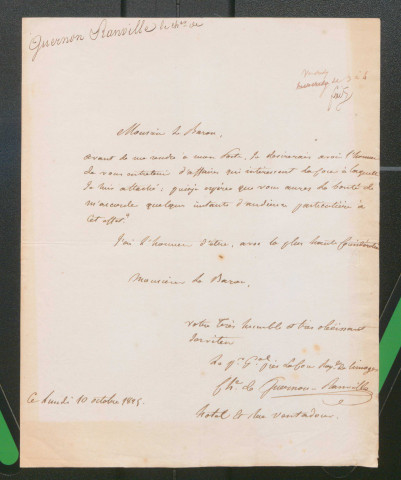 Guernon Ranville le Ch.er de
mercredy de 3 à
Monsieur le Baron,
avant de me rendre à mon Poste, Je desirerais avoir l'honneur
de vous entretenir d'affaires qui intéressent la Cour à laquelle
Je suis attaché; j'espère que vous aurez la bonté de
m'accorder quelques instants d'audience particulière à
cet effet.
J'ai l'honneur d'être, avec la plus haute Considération
Monsieur le Baron,
votre très humble et très obéissant
Serviteur
Le p.r G.al près la Cour Roy.le de Limoges
Ch.er de Guernon Ranville
hotel et rue ventadour.
Ce Lundi 10 octobre